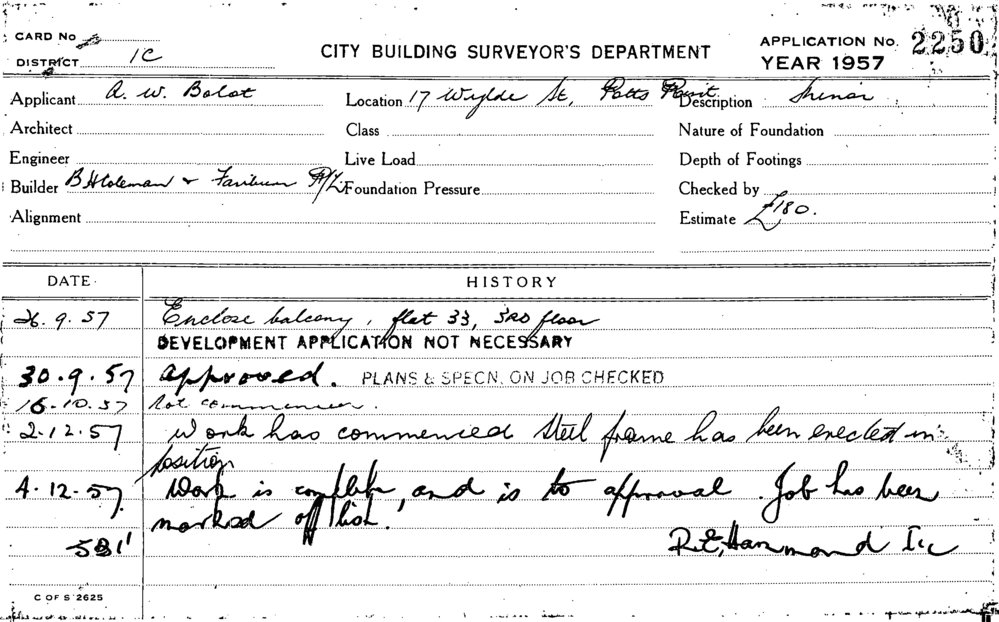 CARD No
DISTRICT 1C
CITY BUILDING SURVEYOR'S DEPARTMENT
APPLICATION No. 2250
YEAR 1957
Applicant A. W. Bolot
Location 17 Wylde St, Potts Point
Description
Architect
Class
Nature of Foundation
Engineer
Live Load
Depth of Footings
Builder & P/L
Foundation Pressure
Checked by
Alignment
Estimate £180.
DATE
HISTORY
26.9.57 Enclose balcony, flat 33, 3RD floor
DEVELOPMENT APPLICATION NOT NECESSARY
30.9.57 approved. PLANS & SPECN. ON JOB CHECKED
.10.57 Not commenced.
2.12.57 Work has commenced Steel frame has been erected in
position
4.12.57 Work is complete, and is to approval. Job has been
marked off list.
R.E. Hammond
C OF S 2625